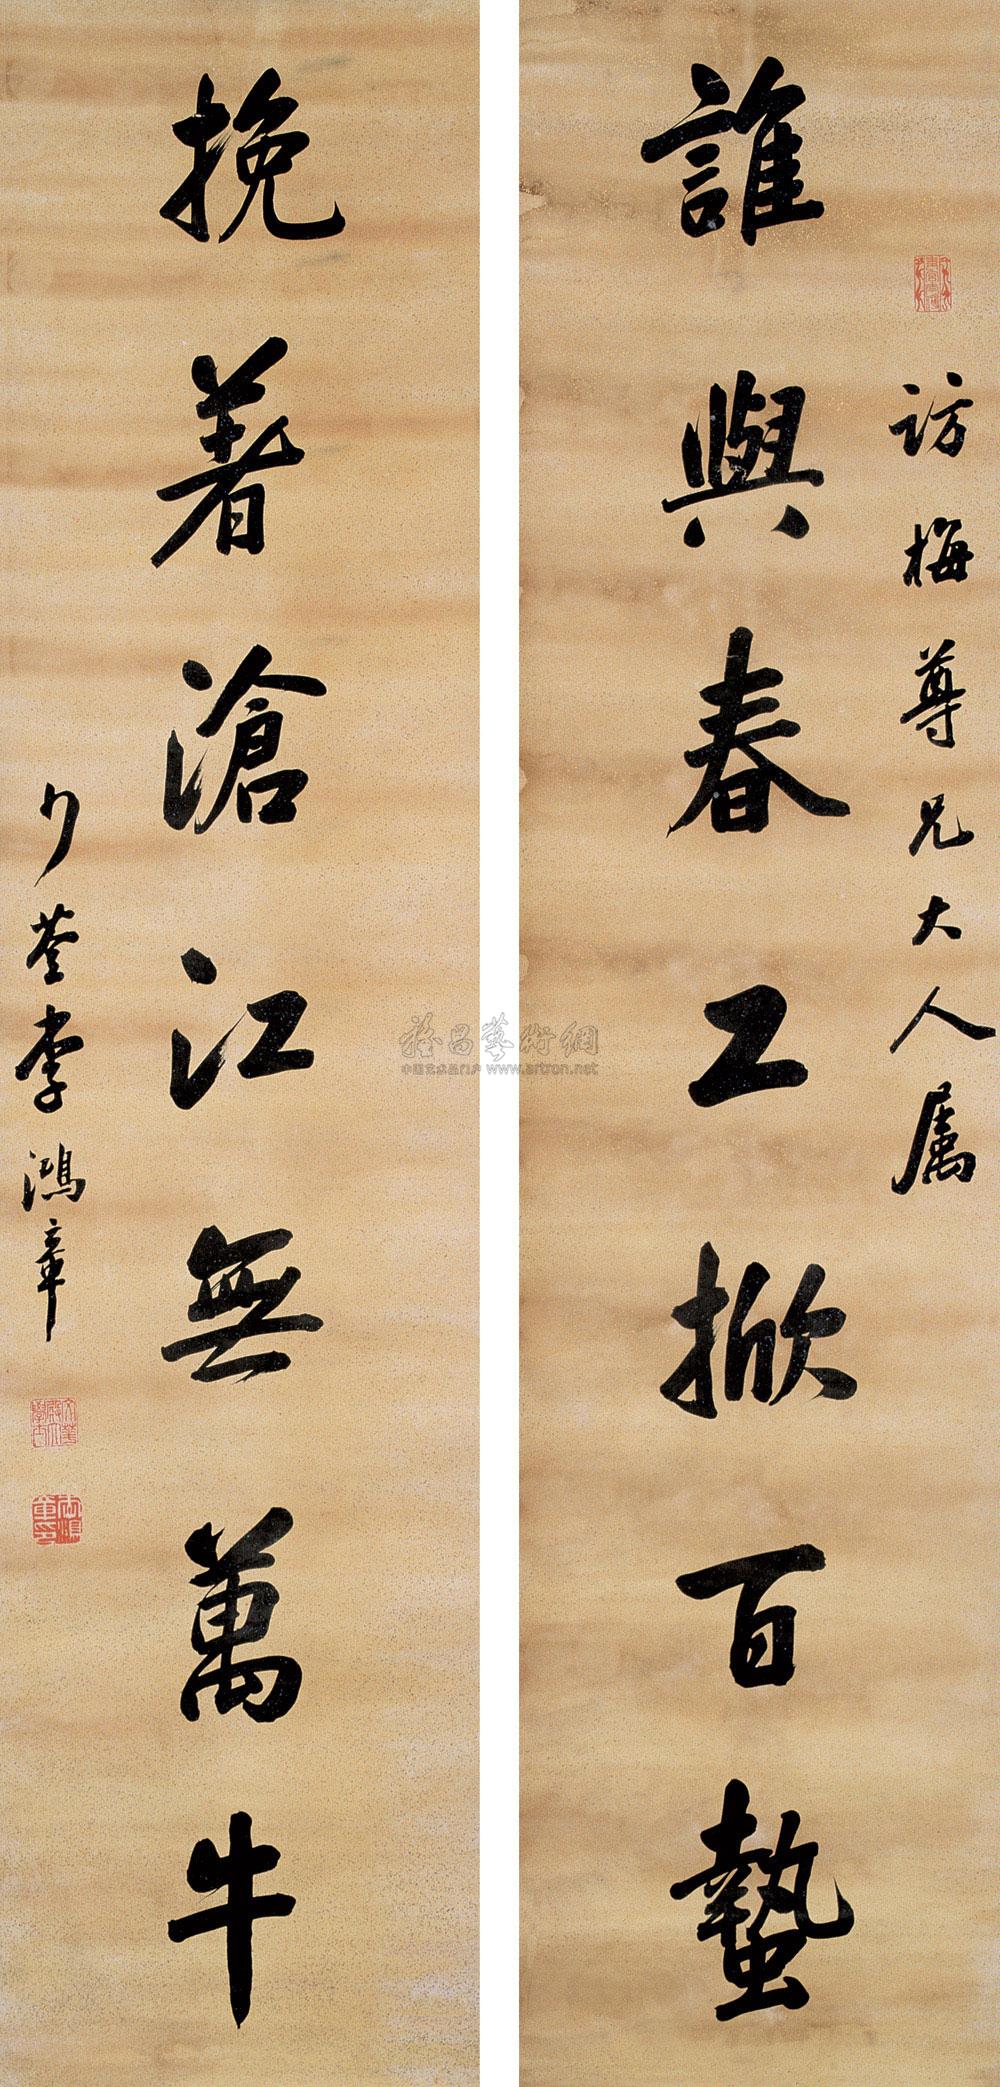 訪梅尊兄大人属
誰與春工掀百蟄
挽著滄江無萬牛
少荃李鴻章
雅昌藝術網
中国艺术品门户 www.artron.net